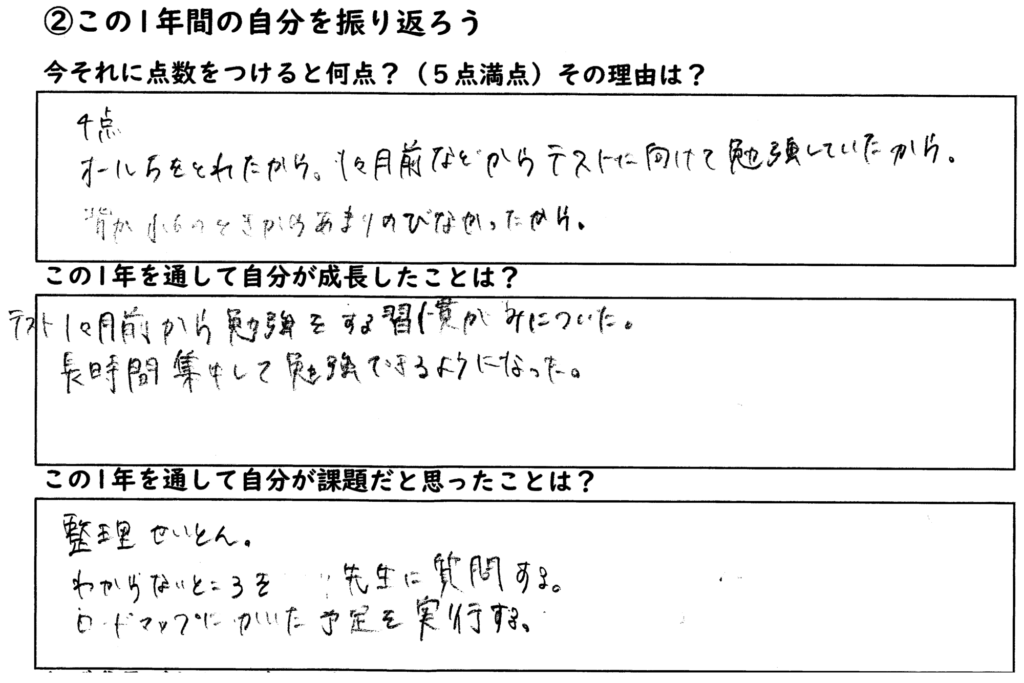 ②この1年間の自分を振り返ろう
今それに点数をつけると何点？（5点満点）その理由は？
4点
オール5をとれたから。1ヶ月前などからテストに向けて勉強していたから。
背が小6のときからあまりのびなかったから。
この1年を通して自分が成長したことは？
テスト1ヶ月前から勉強をする習慣がみについた。
長時間集中して勉強できるようになった。
この1年を通して自分が課題だと思ったことは？
整理せいとん。
わからないところを 先生に質問する。
ロードマップにかいた予定を実行する。